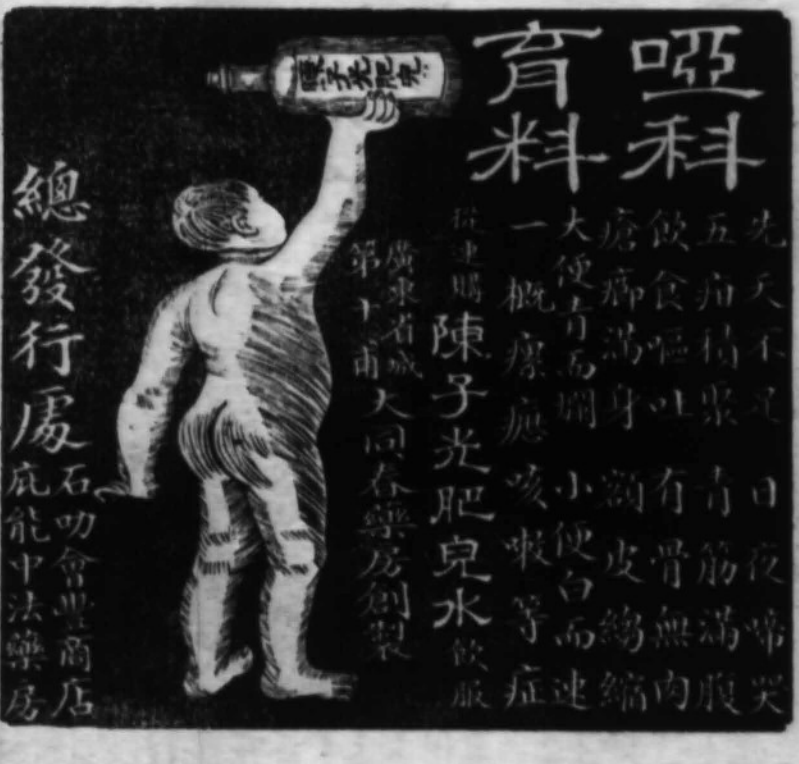 啞科
育料
先天不足 日夜啼哭
五疳積聚 青筋滿腹
飲食嘔吐 有骨無肉
瘡癤滿身 額皮縐縮
大便青而 小便白而速
一概 咳嗽等症
從速購陳子光肥兒水飲服
廣東省城
第十甫
大同春藥房創製
陳子光肥兒
總發行處
石叻會豐商店
庇能中法藥房